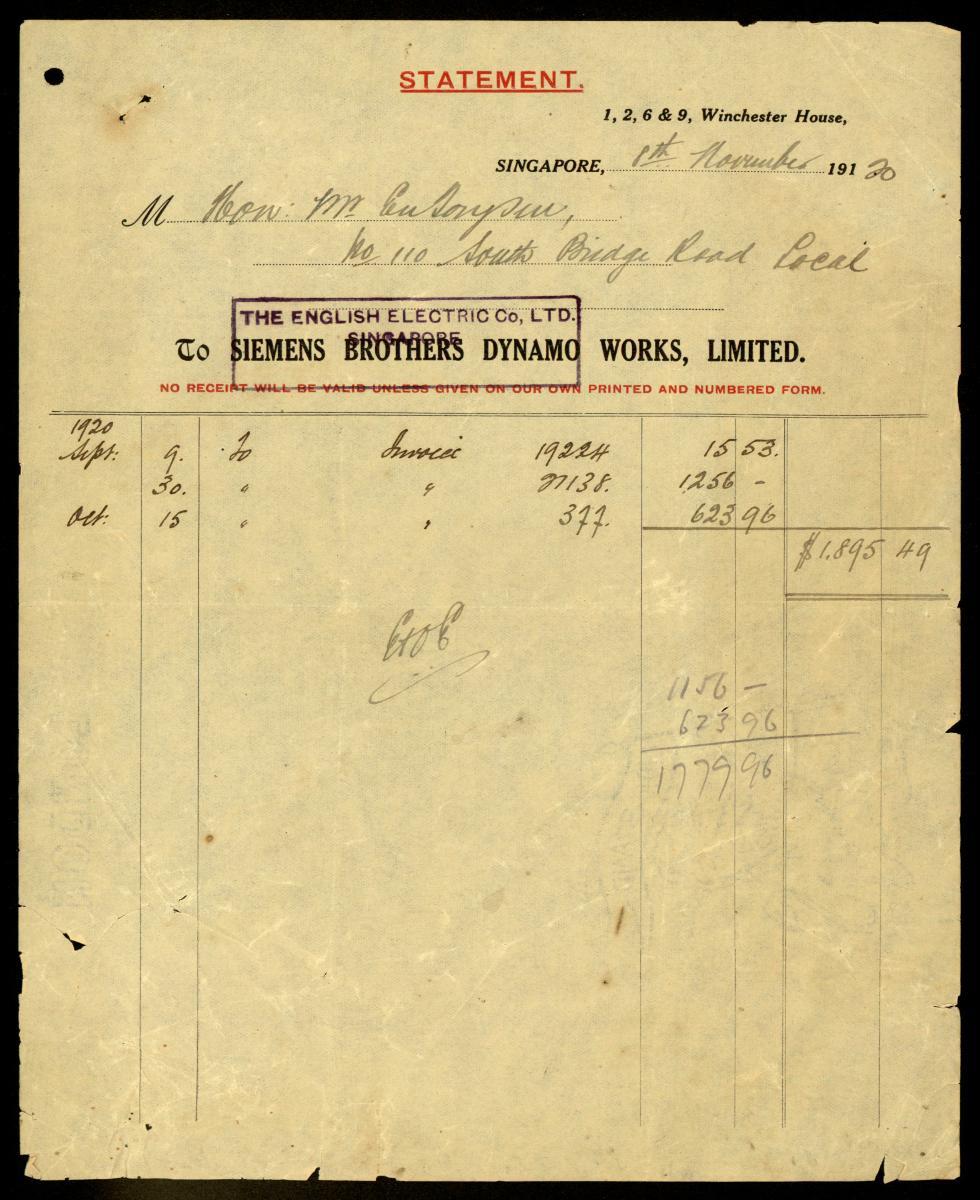 STATEMENT.
1, 2, 6 & 9, Winchester House,
SINGAPORE, 8th November 191 20
M Hon: Mr Eu Tong Sen,
No 110 South Bridge Road Local
THE ENGLISH ELECTRIC Co, LTD.
SINGAPORE
To SIEMENS BROTHERS DYNAMO WORKS, LIMITED.
NO RECEIPT WILL BE VALID UNLESS GIVEN ON OUR OWN PRINTED AND NUMBERED FORM.
1920
Sept: 9. To Invoice 19224 15 53.
30. " " 138. 1256 -
Oct: 15 " " 377. 623 96
$1.895 49
E&OE
1156 -
623 96
1779 96